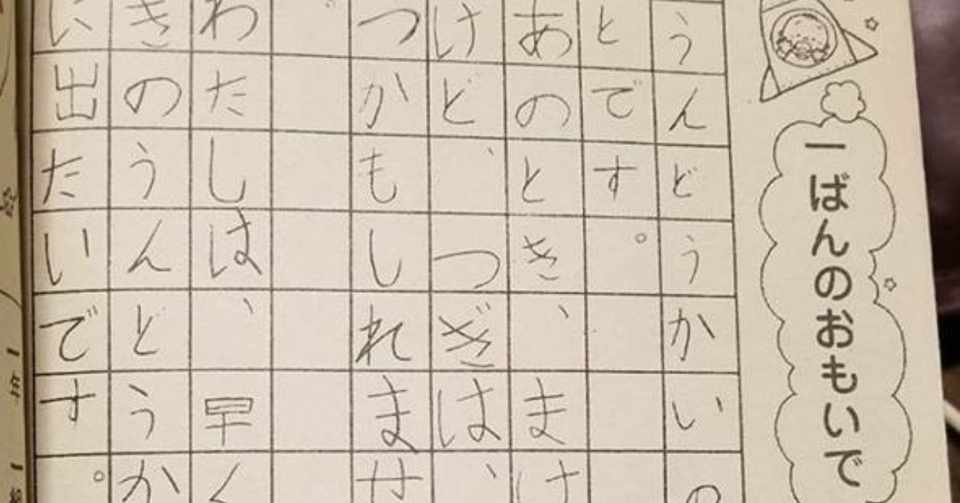 一ばんのおもいで
うんどうかいの
とです。
あのとき、まけ
けど、つぎは、
つかもしれませ
わたしは、早く
きのうんどうか
に出たいです。
一年